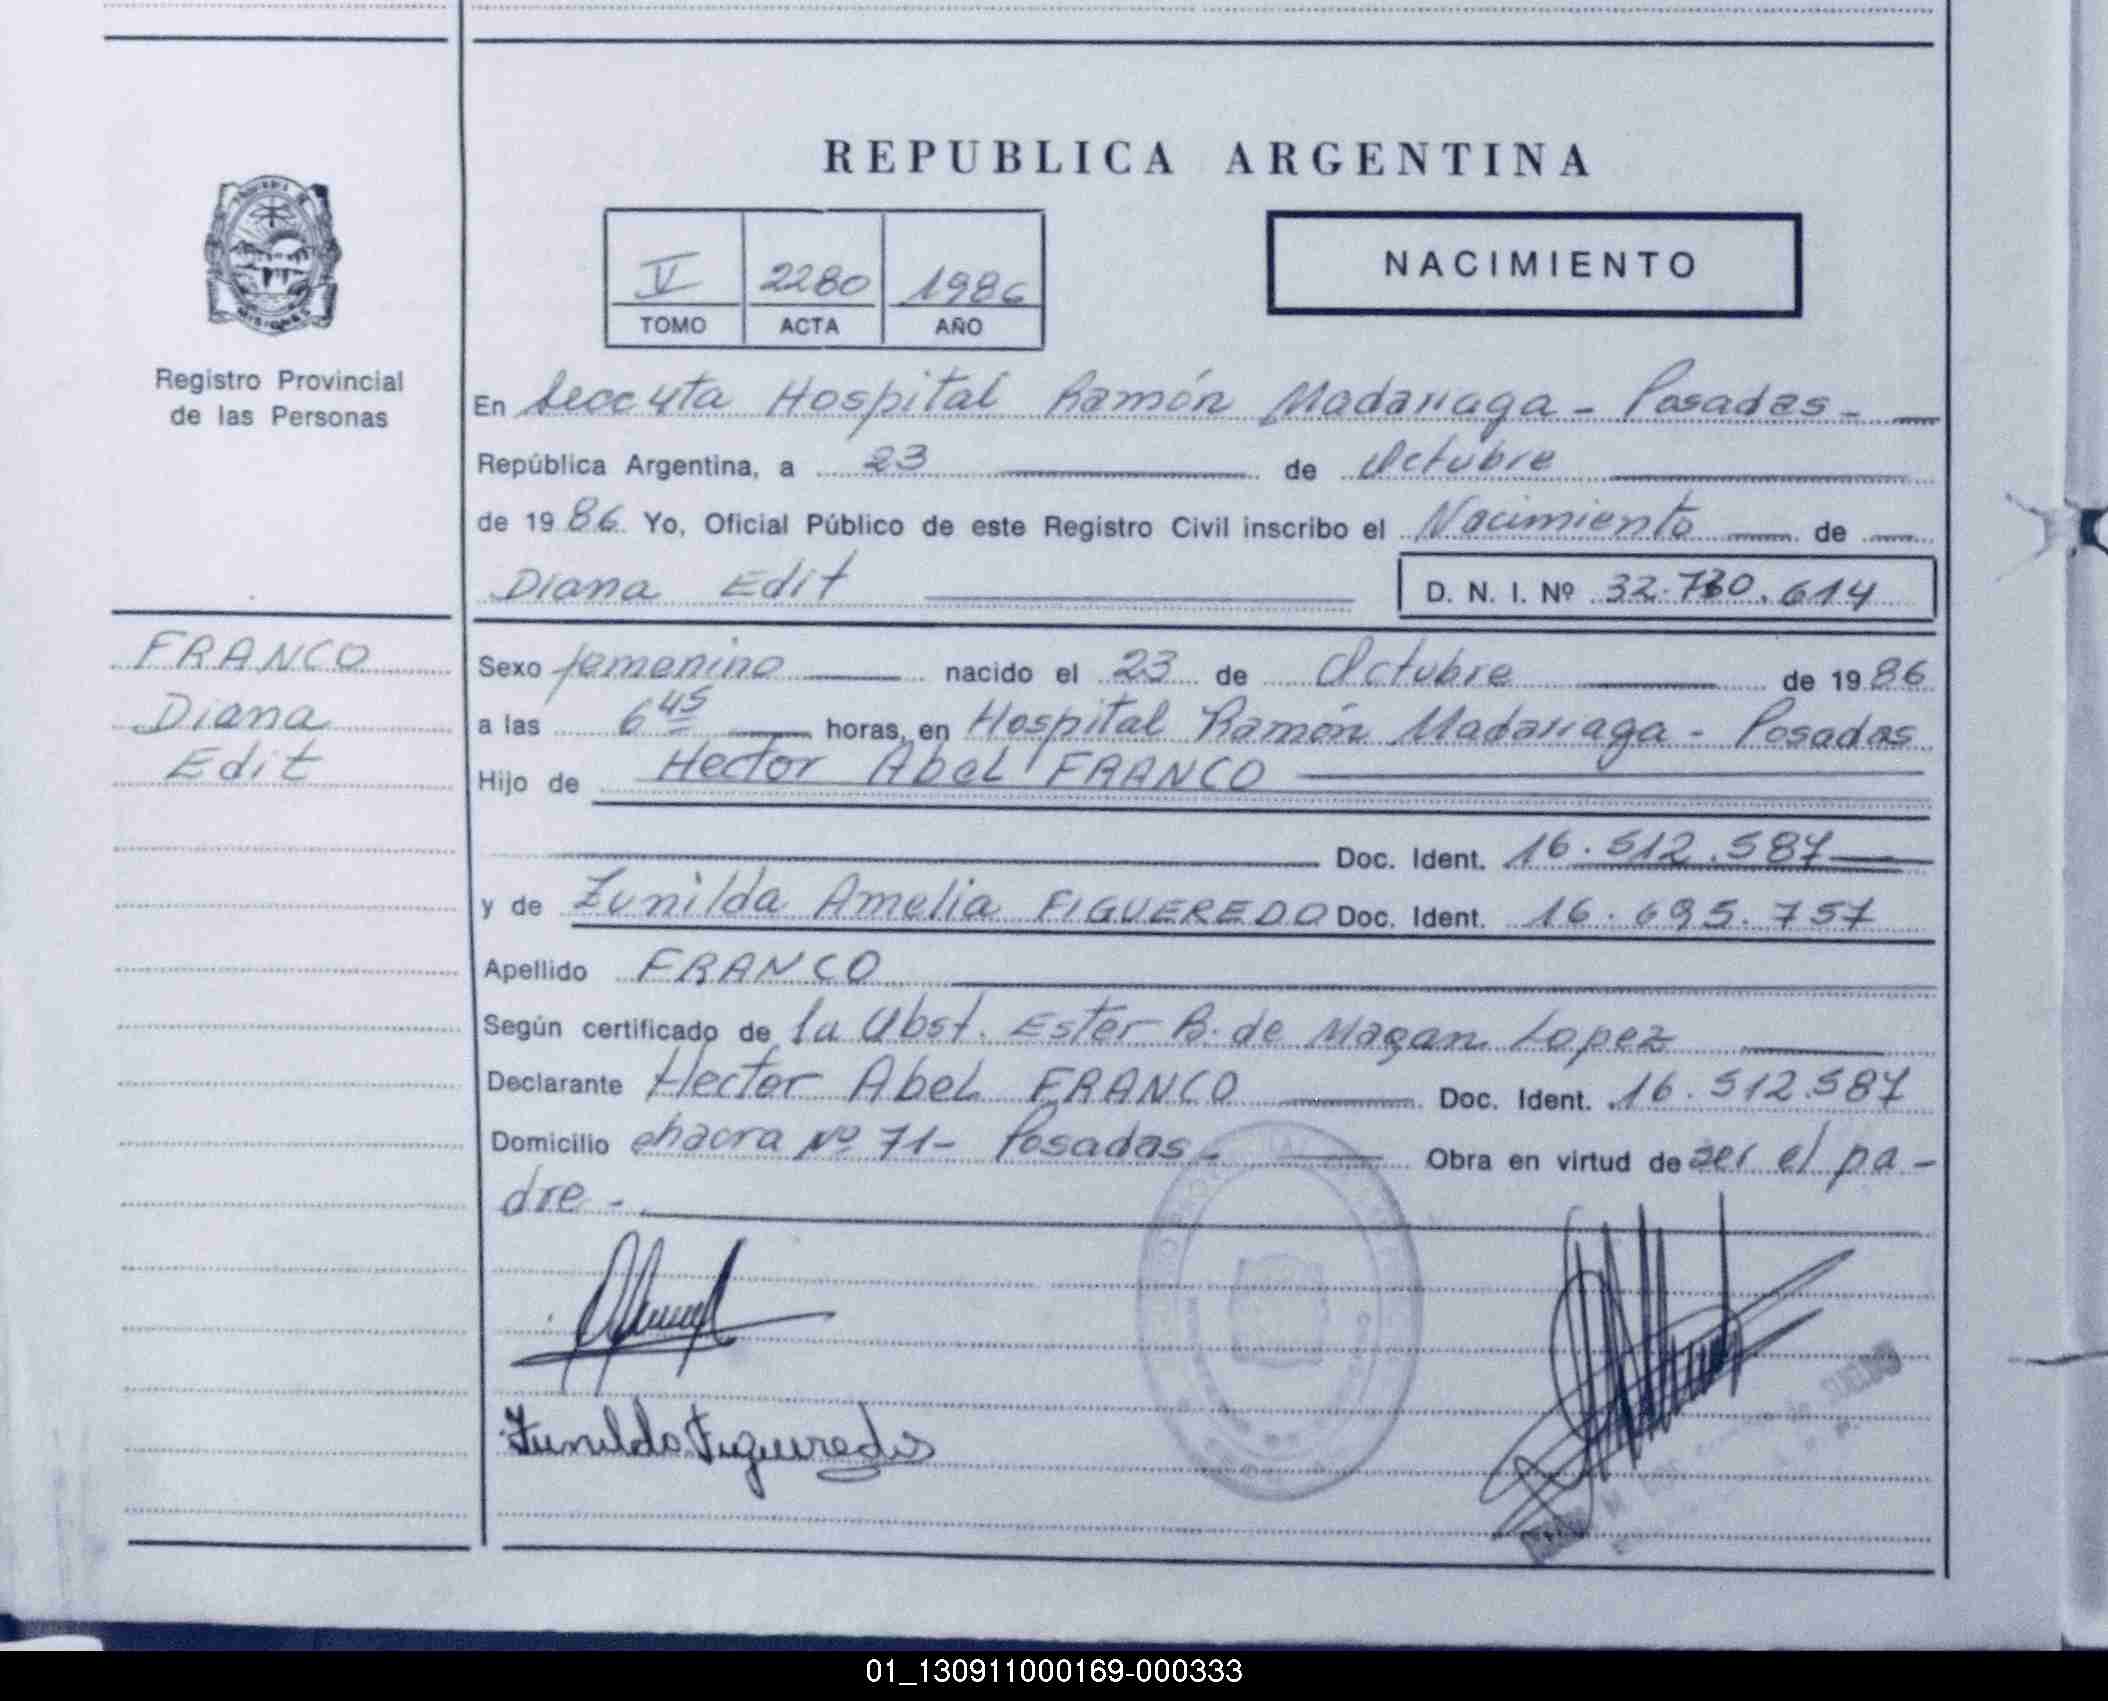 REPUBLICA ARGENTINA
NACIMIENTO
V 2280 1986
TOMO ACTA AÑO
MISIONES
Registro Provincial
de las Personas
En Secc 4ta Hospital Ramón Madariaga - Posadas -
República Argentina, a 23 de Octubre
de 1986 Yo, Oficial Público de este Registro Civil inscribo el Nacimiento de
Diana Edit D. N. I. Nº 32.730.614
FRANCO
Diana
Edit
Sexo femenino nacido el 23 de Octubre de 1986
a las 6 45 horas, en Hospital Ramón Madariaga - Posadas
Hijo de Hector Abel FRANCO
Doc. Ident. 16.512.587
y de Zunilda Amelia FIGUEREDO Doc. Ident. 16.695.757
Apellido FRANCO
Según certificado de la Obst. Ester B. de Magan Lopez
Declarante Hector Abel FRANCO Doc. Ident. 16.512.587
Domicilio chacra Nº 71 - Posadas - Obra en virtud de ser el pa -
dre -
Zunilda Figueredo
01_130911000169-000333